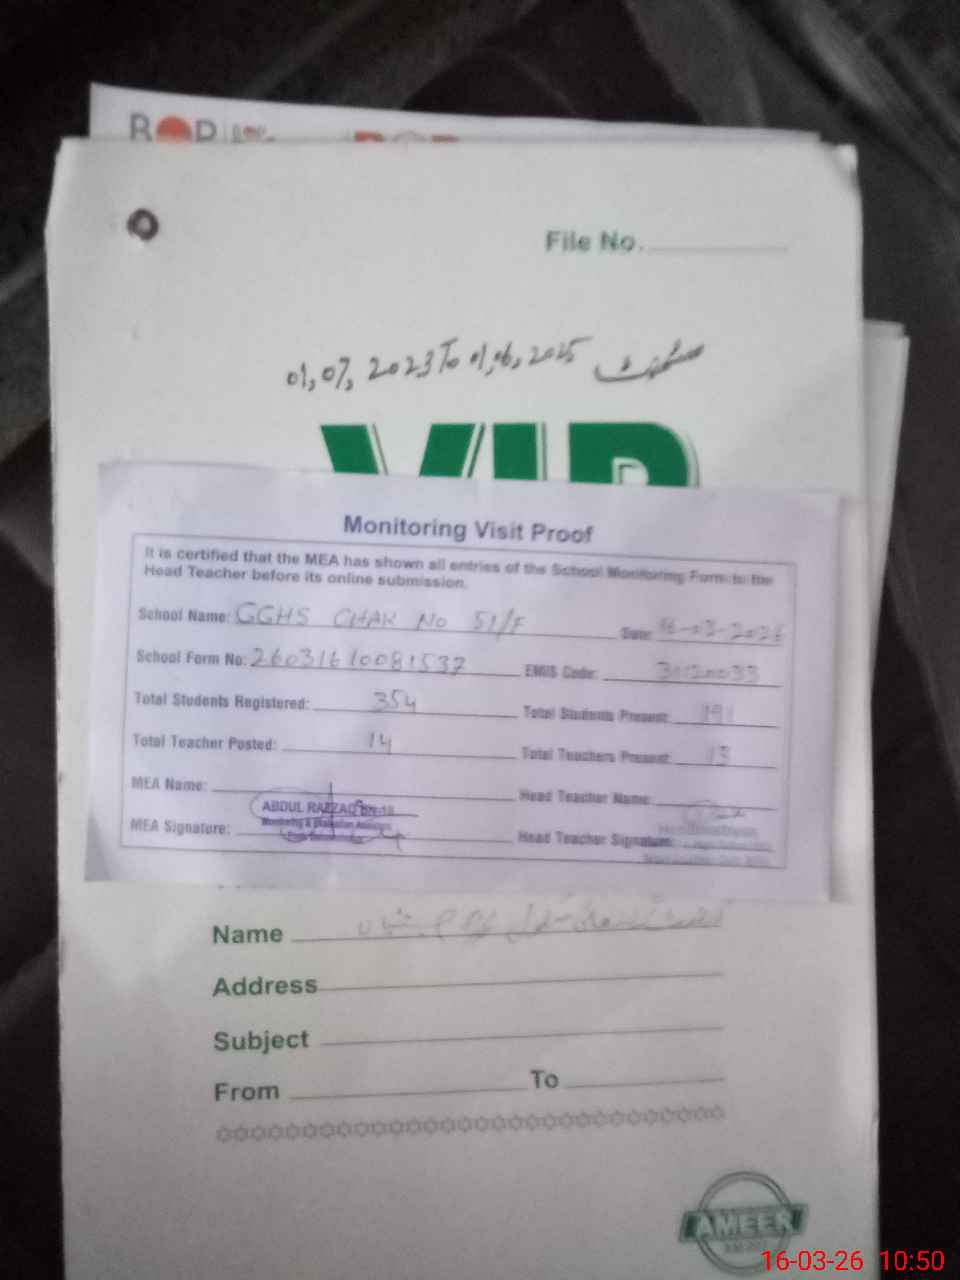 File No.
01,07, 2023 To 01,06, 2025
VIP
Monitoring Visit Proof
It is certified that the MEA has shown all entries of the School Monitoring Form to the
Head Teacher before its online submission.
School Name: GGHS CHAK No 51/F Date: 16-03-2026
School Form No: 26031610081537 EMIS Code:
Total Students Registered: 354 Total Students Present: 191
Total Teacher Posted: 14 Total Teachers Present: 13
MEA Name: Head Teacher Name:
ABDUL RAZZAQ
MEA Signature: Head Teacher Signature:
Name
Address
Subject
From To
AMEER
16-03-26 10:50